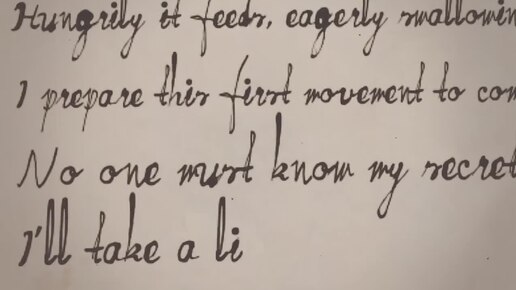 Hungrily it feeds, eagerly swallowin
I prepare this first movement to com
No one must know my secret
I'll take a li